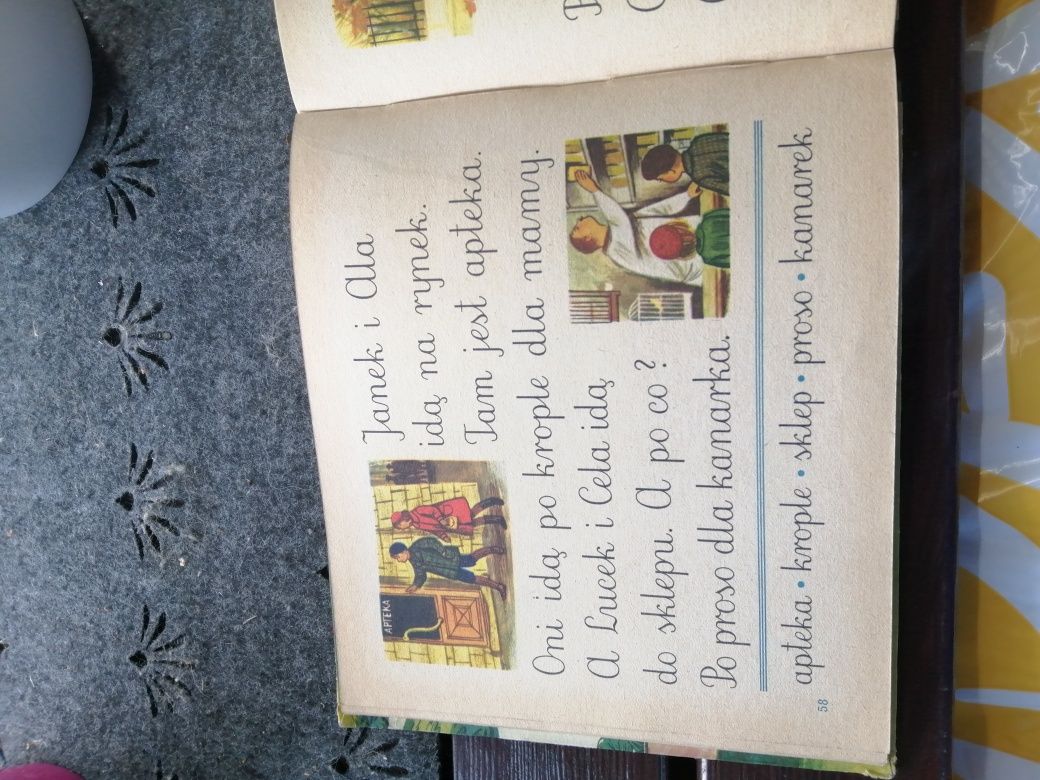 APTEKA
Janek i Alla
idą na rynek.
Tam jest apteka.
Oni idą po krople dla mamy.
A Lucek i Cela idą
do sklepu. A po co?
Po proso dla kanarka.
apteka • krople • sklep • proso • kanarek
58